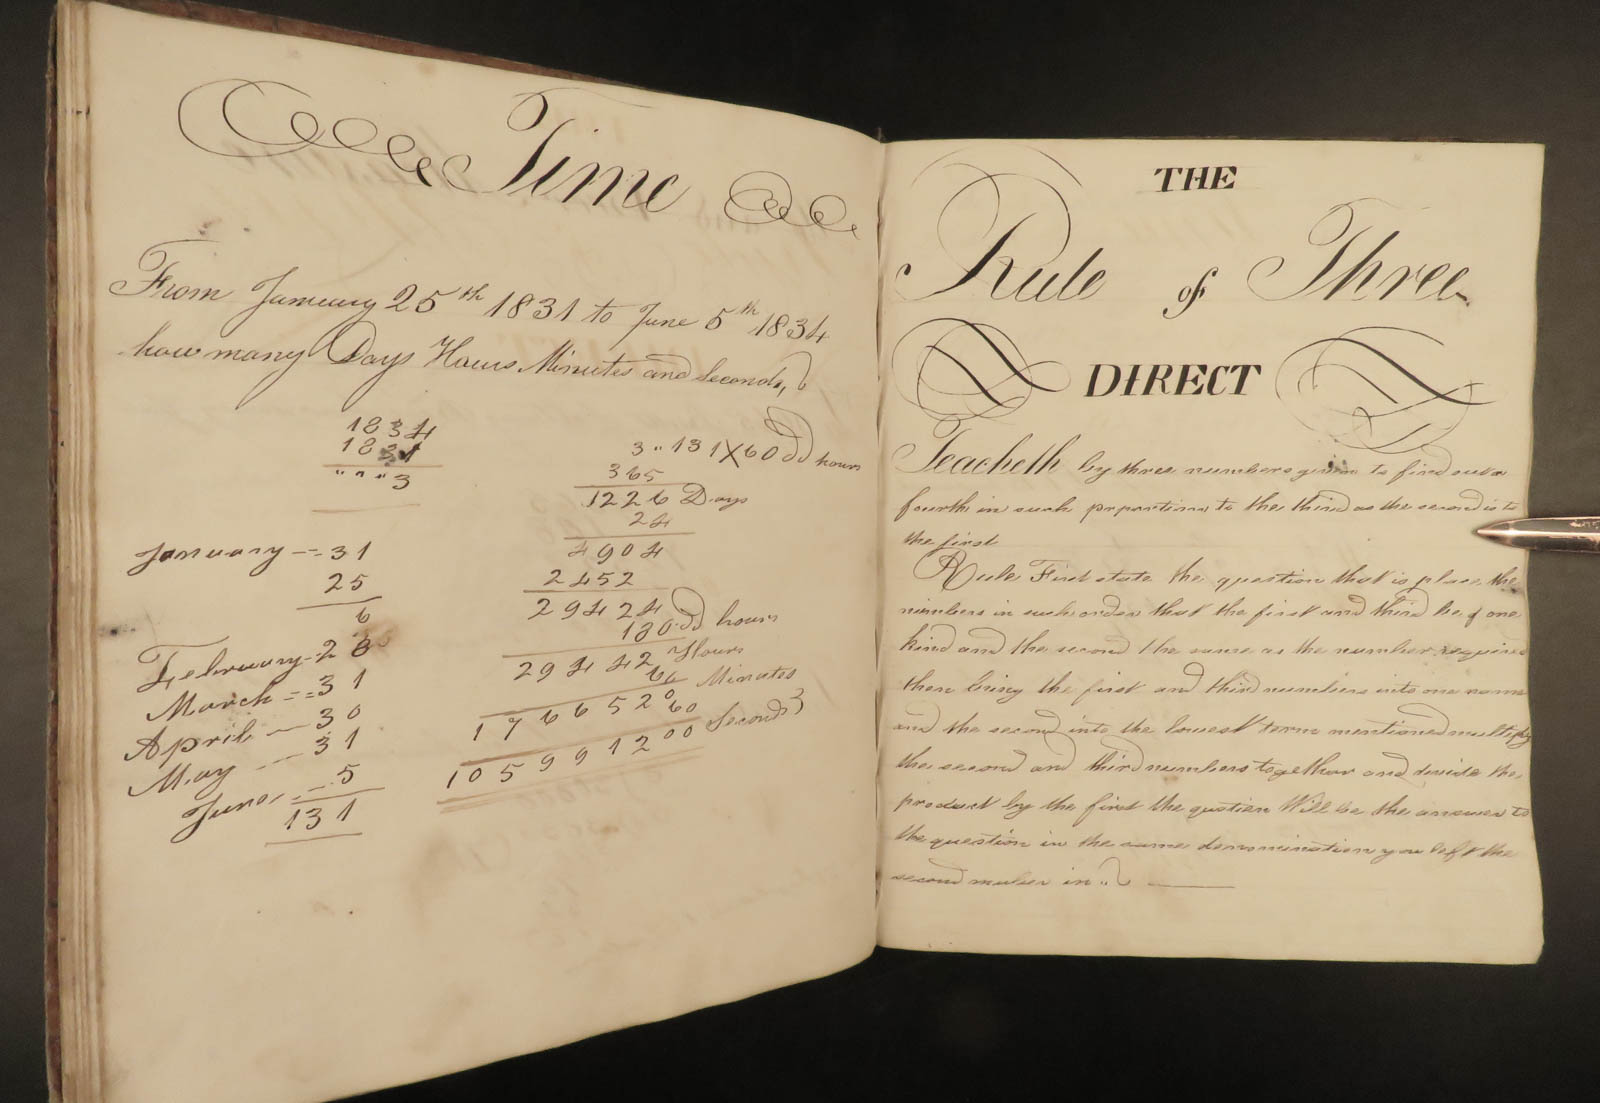 Time
From January 25th 1831 to June 5th 1834
how many Days Hours Minutes and Seconds,
1834
1831
" " " 3
January -- 31
25
6
February - 28
March == 31
April — 30
May -- 31
June, -- 5
131
3 " 131 X 60 dd hours
365
1226 Days
24
4904
2452
29424
18 odd hours
29442 Hours
60
1766520 Minutes
60
105991200 Seconds
THE
Rule of Three
DIRECT
Teacheth by three numbers given to find out a
fourth in such proportion to the third as the second is to
the first
Rule First state the question that is place the
numbers in such order that the first and third be of one
kind and the second the same as the number required
then bring the first and third numbers into one name
and the second into the lowest term mentioned multiply
the second and third numbers together and devide the
product by the first the qustien Will be the answer to
the question in the same denomination you left the
second in "